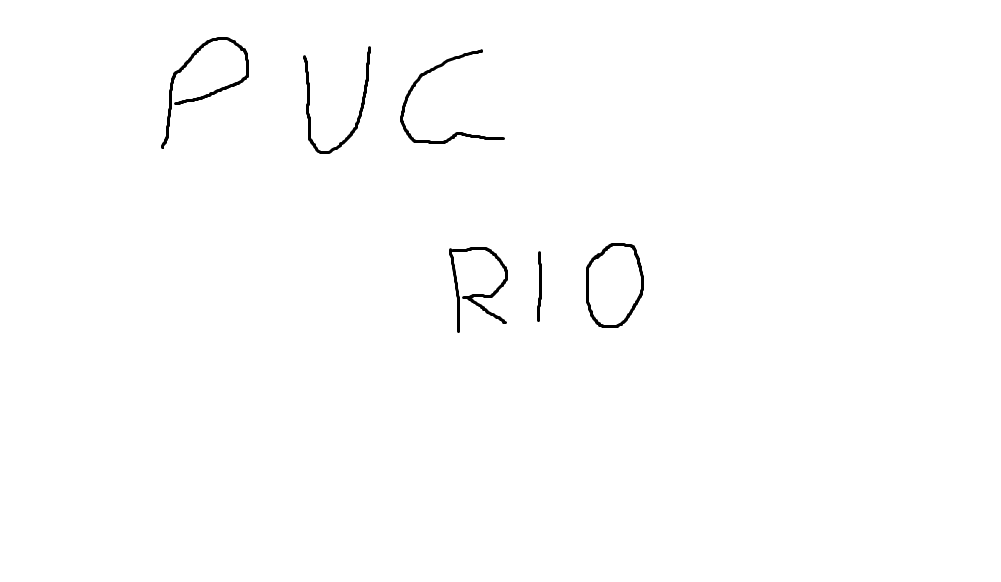 PUC
RIO